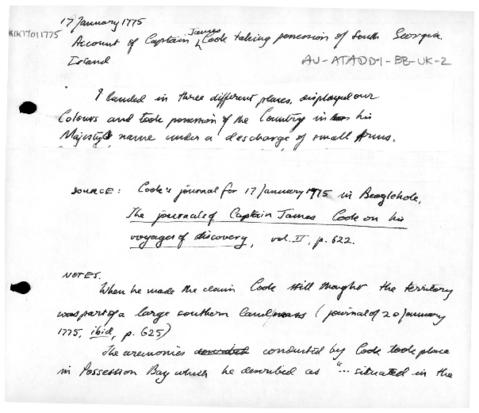 17 January 1775
UK17011775
Account of Captain James Cook taking possession of South Georgia
Island
AU-ATADD1-BB-UK-2
I landed in three different places, displayed our
Colours and took possession of the Country in his
Majestys name under a descharge of small Arms.
SOURCE: Cook's journal for 17 January 1775 in Beaglehole,
The journals of Captain James Cook on his
voyages of discovery, vol. II, p. 622.
NOTES.
When he made the claim Cook still thought the territory
was part of a large southern landmass (journal of 20 January
1775, ibid, p. 625)
The ceremonies conducted by Cook took place
in Possession Bay which he described as "... situated in the